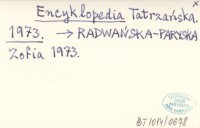 Encyklopedia Tatrzańska.
1973. → RADWAŃSKA-PARYSKA
Zofia 1973.
BT/014/0678